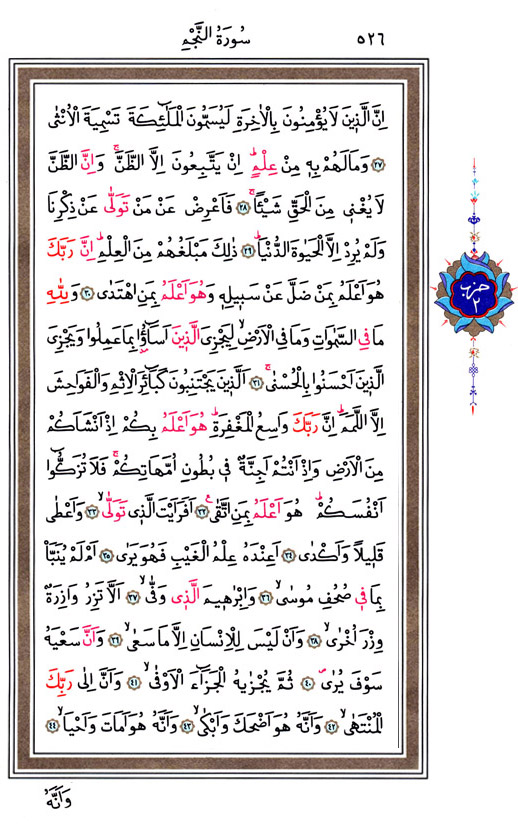 ٥٢٦ سُورَةُ النَّجْمِ
اِنَّ الَّذ۪ينَ لَا يُؤْمِنُونَ بِالْاٰخِرَةِ لَيُسَمُّونَ الْمَلٰٓئِكَةَ تَسْمِيَةَ الْاُنْثٰى
﴿٢٧﴾ وَمَا لَهُمْ بِه۪ مِنْ عِلْمٍۜ اِنْ يَتَّبِعُونَ اِلَّا الظَّنَّۚ وَاِنَّ الظَّنَّ
لَا يُغْن۪ي مِنَ الْحَقِّ شَيْـًٔاۚ ﴿٢٨﴾ فَاَعْرِضْ عَنْ مَنْ تَوَلّٰى عَنْ ذِكْرِنَا
وَلَمْ يُرِدْ اِلَّا الْحَيٰوةَ الدُّنْيَاۜ ﴿٢٩﴾ ذٰلِكَ مَبْلَغُهُمْ مِنَ الْعِلْمِۜ اِنَّ رَبَّكَ
هُوَ اَعْلَمُ بِمَنْ ضَلَّ عَنْ سَب۪يلِه۪ وَهُوَ اَعْلَمُ بِمَنِ اهْتَدٰى ﴿٣٠﴾ وَلِلّٰهِ
مَا فِي السَّمٰوَاتِ وَمَا فِي الْاَرْضِۙ لِيَجْزِيَ الَّذ۪ينَ اَسَٓاؤُ۫ا بِمَا عَمِلُوا وَيَجْزِيَ
الَّذ۪ينَ اَحْسَنُوا بِالْحُسْنٰىۚ ﴿٣١﴾ اَلَّذ۪ينَ يَجْتَنِبُونَ كَبَٓائِرَ الْاِثْمِ وَالْفَوَاحِشَ
اِلَّا اللَّمَمَۜ اِنَّ رَبَّكَ وَاسِعُ الْمَغْفِرَةِۜ هُوَ اَعْلَمُ بِكُمْ اِذْ اَنْشَاَكُمْ
مِنَ الْاَرْضِ وَاِذْ اَنْتُمْ اَجِنَّةٌ ف۪ي بُطُونِ اُمَّهَاتِكُمْۚ فَلَا تُزَكُّٓوا
اَنْفُسَكُمْۜ هُوَ اَعْلَمُ بِمَنِ اتَّقٰى۟ ﴿٣٢﴾ اَفَرَاَيْتَ الَّذ۪ي تَوَلّٰىۙ ﴿٣٣﴾ وَاَعْطٰى
قَل۪يلًا وَاَكْدٰى ﴿٣٤﴾ اَعِنْدَهُ عِلْمُ الْغَيْبِ فَهُوَ يَرٰى ﴿٣٥﴾ اَمْ لَمْ يُنَبَّأْ
بِمَا ف۪ي صُحُفِ مُوسٰىۙ ﴿٣٦﴾ وَاِبْرٰه۪يمَ الَّذ۪ي وَفّٰىۙ ﴿٣٧﴾ اَلَّا تَزِرُ وَازِرَةٌ
وِزْرَ اُخْرٰىۙ ﴿٣٨﴾ وَاَنْ لَيْسَ لِلْاِنْسَانِ اِلَّا مَا سَعٰىۙ ﴿٣٩﴾ وَاَنَّ سَعْيَهُ
سَوْفَ يُرٰىۖ ﴿٤٠﴾ ثُمَّ يُجْزٰيهُ الْجَزَٓاءَ الْاَوْفٰىۙ ﴿٤١﴾ وَاَنَّ اِلٰى رَبِّكَ
الْمُنْتَهٰىۙ ﴿٤٢﴾ وَاَنَّهُ هُوَ اَضْحَكَ وَاَبْكٰىۙ ﴿٤٣﴾ وَاَنَّهُ هُوَ اَمَاتَ وَاَحْيَاۙ ﴿٤٤﴾
حزب
٢
وَاَنَّهُ